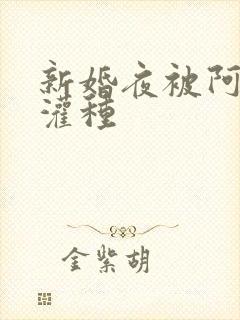 新婚夜被阿
灌種
金紫胡